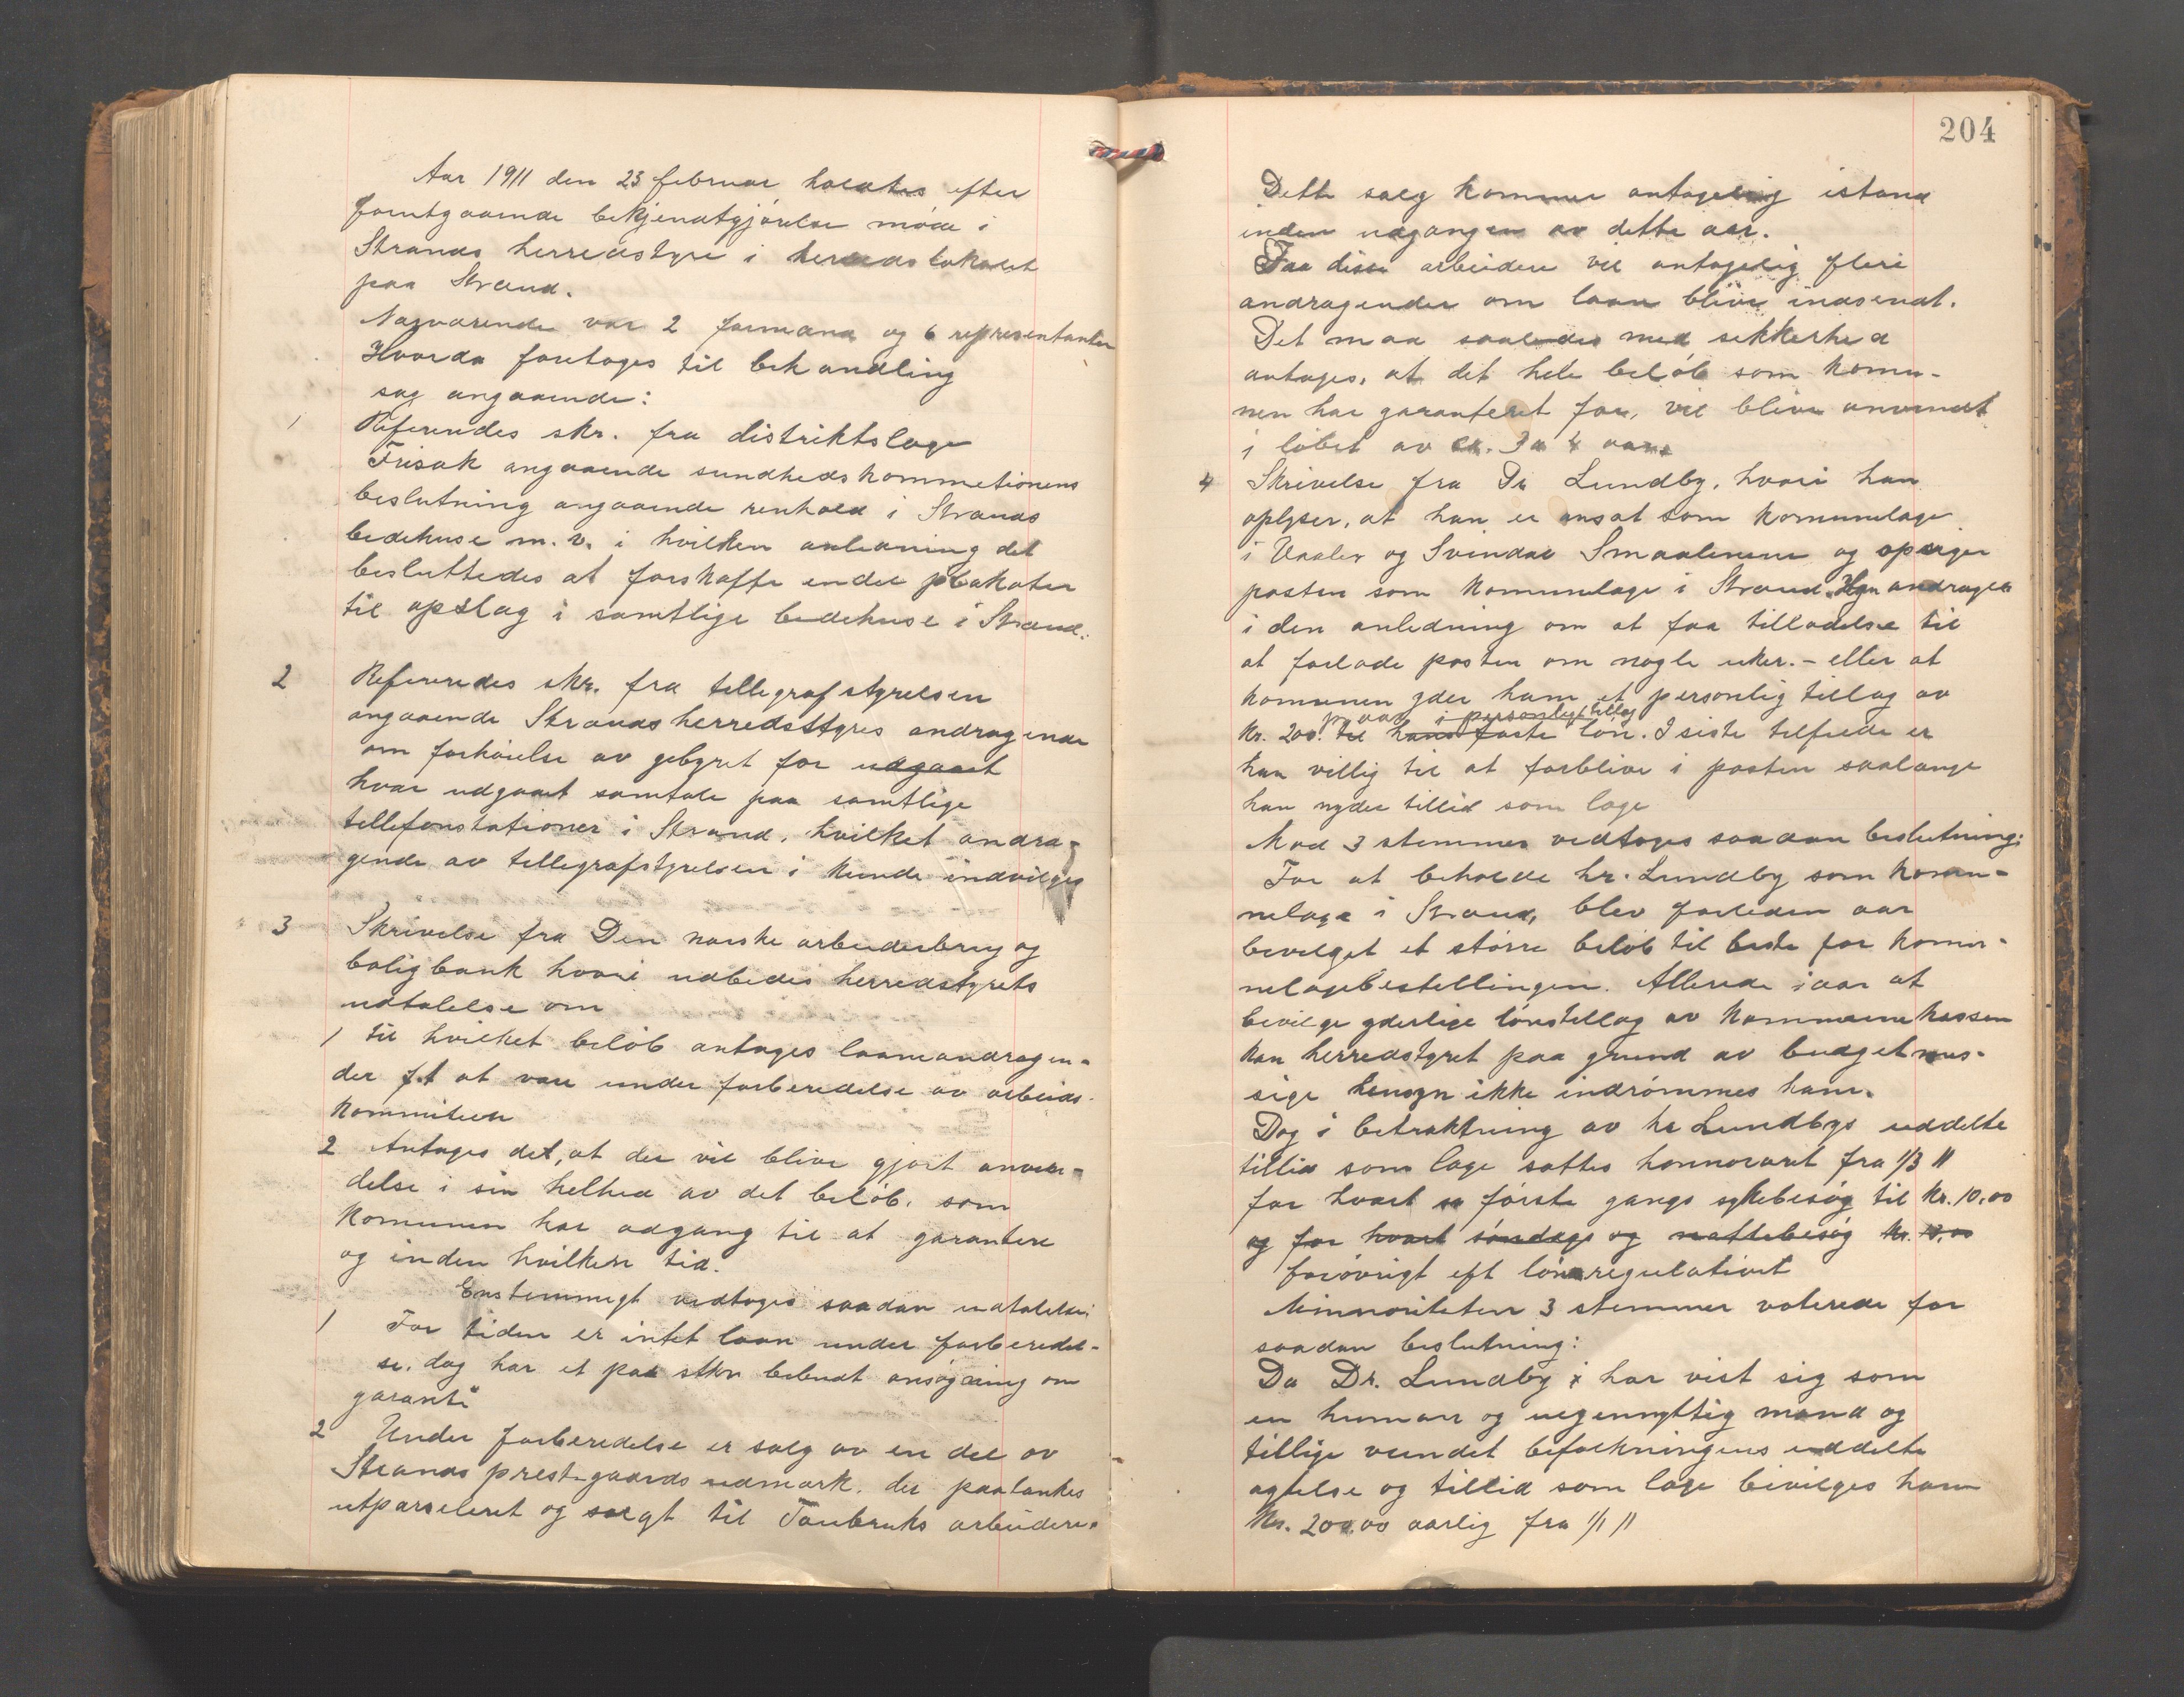 Aar 1911 den 23 februar holdtes efter
forutgaaende bekjendtgjörelse möde i
Strands herredstyre i herredslokalet
paa Strand.
Nærværende var 2 formænd og 6 representanter
Hvorda foretoges til behandling
sag angaaende:
1 Refereredes skr. fra distriktslæge
Frisak angaaende sundhedskommetionens
beslutning angaaende renhold i Strands
bedehuse m.v. i hvilken anledning det
besluttedes at forskaffe endel plakater
til opslag i samtlige bedehuse i Strand.
2 Refereredes skr. fra tellegrafstyrelsen
angaaende Strands herredsstyres andragende
om forhöielse av gebyret for udgaaet
hver udgaaet samtale paa samtlige
tellefonstationer i Strand, hvilket andra-
gende av tellegrafstyrelsen i kunde indvilges
3 Skrivelse fra Den norske arbeiderbrug og
boligbank hvori udbedes herredstyrets
udtalelse om
1 til hvilket belöb antages laaneandragen-
der f.t at være under forberedelse av arbeids-
kommiteen
2 Antages det, at der vil blive gjort anven-
delse i sin helhed av det belöb, som
Komunen har adgang til at garantere
og inden hvilken tid.
Enstemmigt vedtoges saadan udtalelse:
1 For tiden er intet laan under forberedel-
se. dog har et par stkr bebudt ansögning om
garanti
2 Under forberedelse er salg av en del av
Strands prestegaards udmark. der paatænkes
utparseleret og solgt til Taubruks arbeidere.
204
Dette salg kommer antagelig istand
inden udgangen av dette aar.
Fra disse arbeidere vil antagelig flere
andragender om laan blive indsendt.
Det maa saaledes med sikkerhed
antages, at det hele belöb som komu-
nen har garanteret for, vil blive anvendt
i löbet av ca. 3 a 4 aar.
4 Skrivelse fra Dr Lundby, hvori han
oplyser, at han er ansat som komunelæge
i Vaaler og Svindal Smaalenene og opsiger
posten som komunelæge i Strand. Han andrager
i den anledning om at faa tilladelse til
at forlade posten om nogle uker. - eller at
komunen yder ham et personlig tillæg av
pr aar i personligt tillæg
Kr. 200. til hans faste lön. I siste tilfælde er
han villig til at forblive i posten saalænge
han nyder tillid som læge
Mod 3 stemmer vedtoges saadan beslutning:
For at beholde hr. Lundby som komu-
nelæge i Strand, blev forleden aar
bevilget et större belöb til beste for komu-
nelægebestellingen. Allerede iaar at
bevilge yderlige lönstillæg av kommunekassen
kan herredstyret paa grund av budgetmæs-
sige hensyn ikke indrömmes ham.
Dog i betraktning av hr Lundbys uddelte
tillid som læge sattes honnoraret fra 1/3 11
for hvert förste gangs sykebesög til Kr. 10.00
og for hvert söndags og nattebesög Kr. 10.00
forövrigt eft lönsregulativet
Minnoriteten 3 stemmer voterede for
saadan beslutning:
Da Dr. Lundby har vist sig som
en human og uegennyttig mand og
tillige vundet befolkningens uddelte
agtelse og tillid som læge bevilges ham
Kr. 200.00 aarlig fra 1/1 11